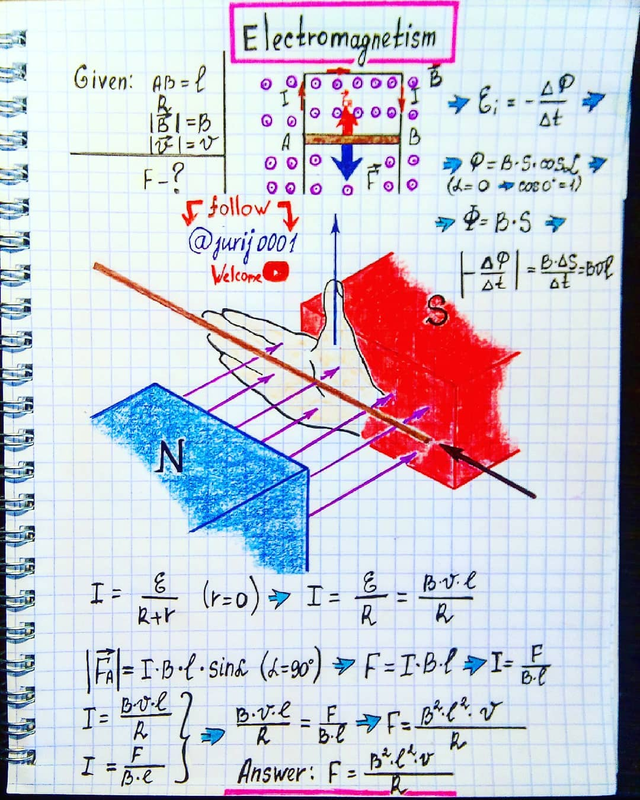 Electromagnetism
Given: AB = l
R
|B⃗| = B
|v⃗| = v
F - ?
I I B⃗
A B
F⃗
ℰi = - ΔΦ/Δt
Φ = B·S·cosα
(α=0 → cos0°=1)
Φ = B·S
|-ΔΦ/Δt| = B·ΔS/Δt = Bvl
follow
@jurij0001
Welcome
S
N
I = ℰ/R+r (r=0) ⇒ I = ℰ/R = B·v·l/R
|F⃗A| = I·B·l·sinα (α=90°) ⇒ F = I·B·l ⇒ I = F/B·l
I = B·v·l/R
I = F/B·l
⇒ B·v·l/R = F/B·l ⇒ F = B²·l²·v/R
Answer: F = B²·l²·v/R